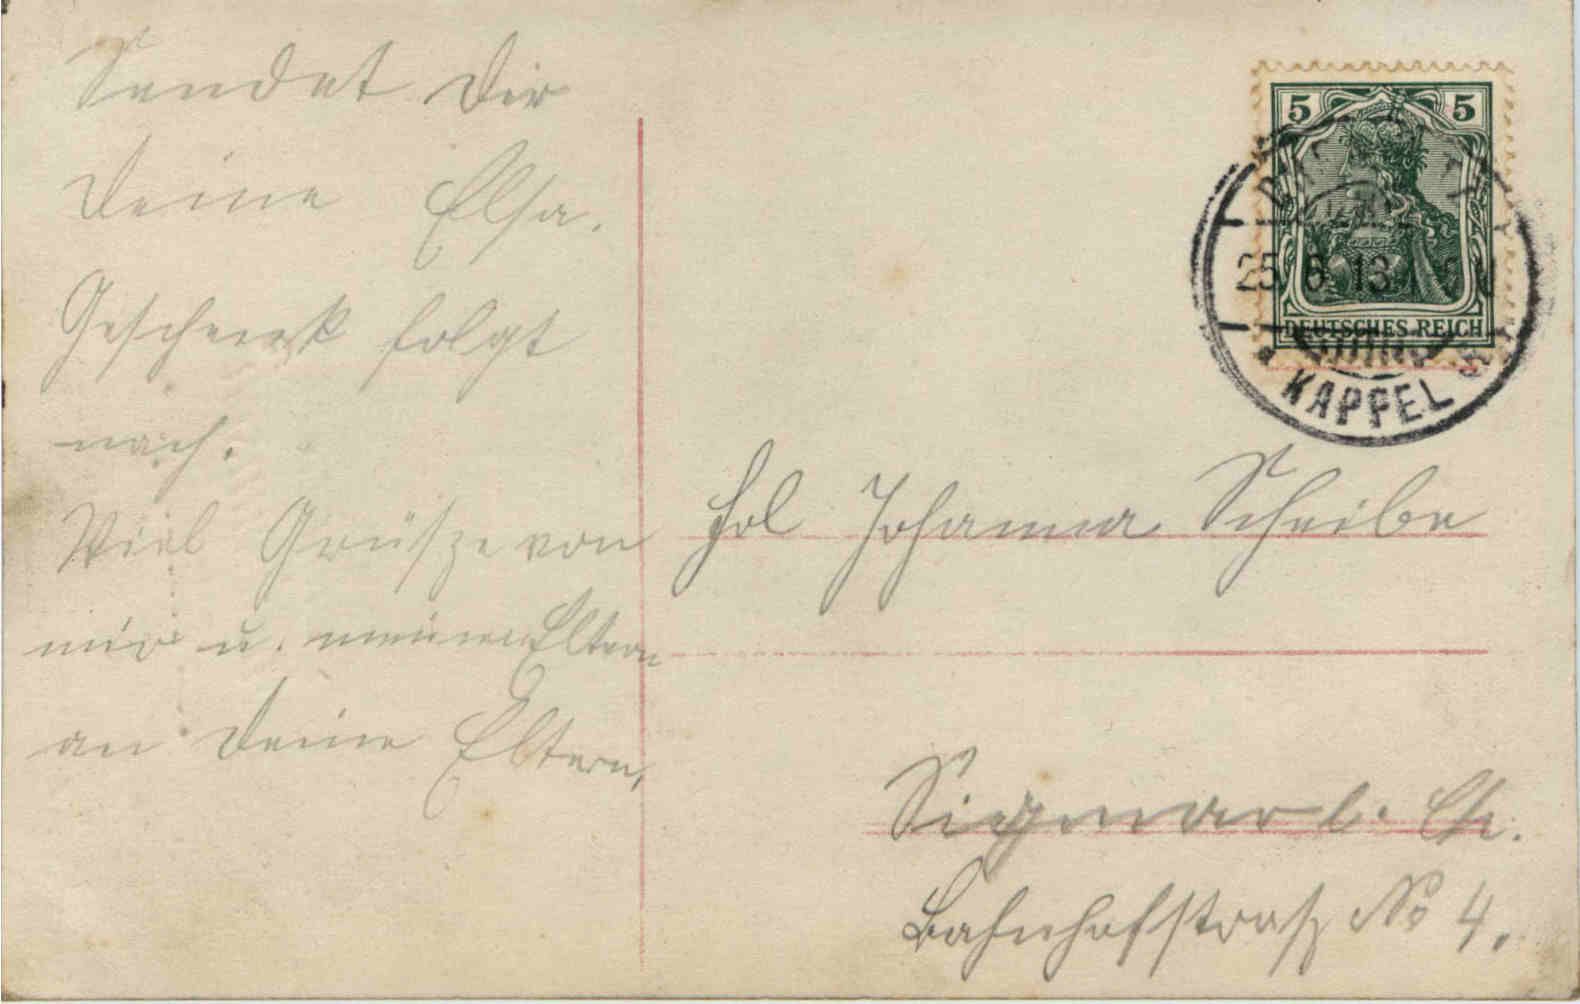 Sendet Dir
Deine Elsa.
Geschenk folgt
nach.
Viel Grüsze von
mir u. meinen Eltern
an Deine Eltern,
5 5
25 6 13
DEUTSCHES REICH
KAPPEL
Frl Johanna Scheibe
Siegmar b. Ch.
Bahnhofstraß No 4.